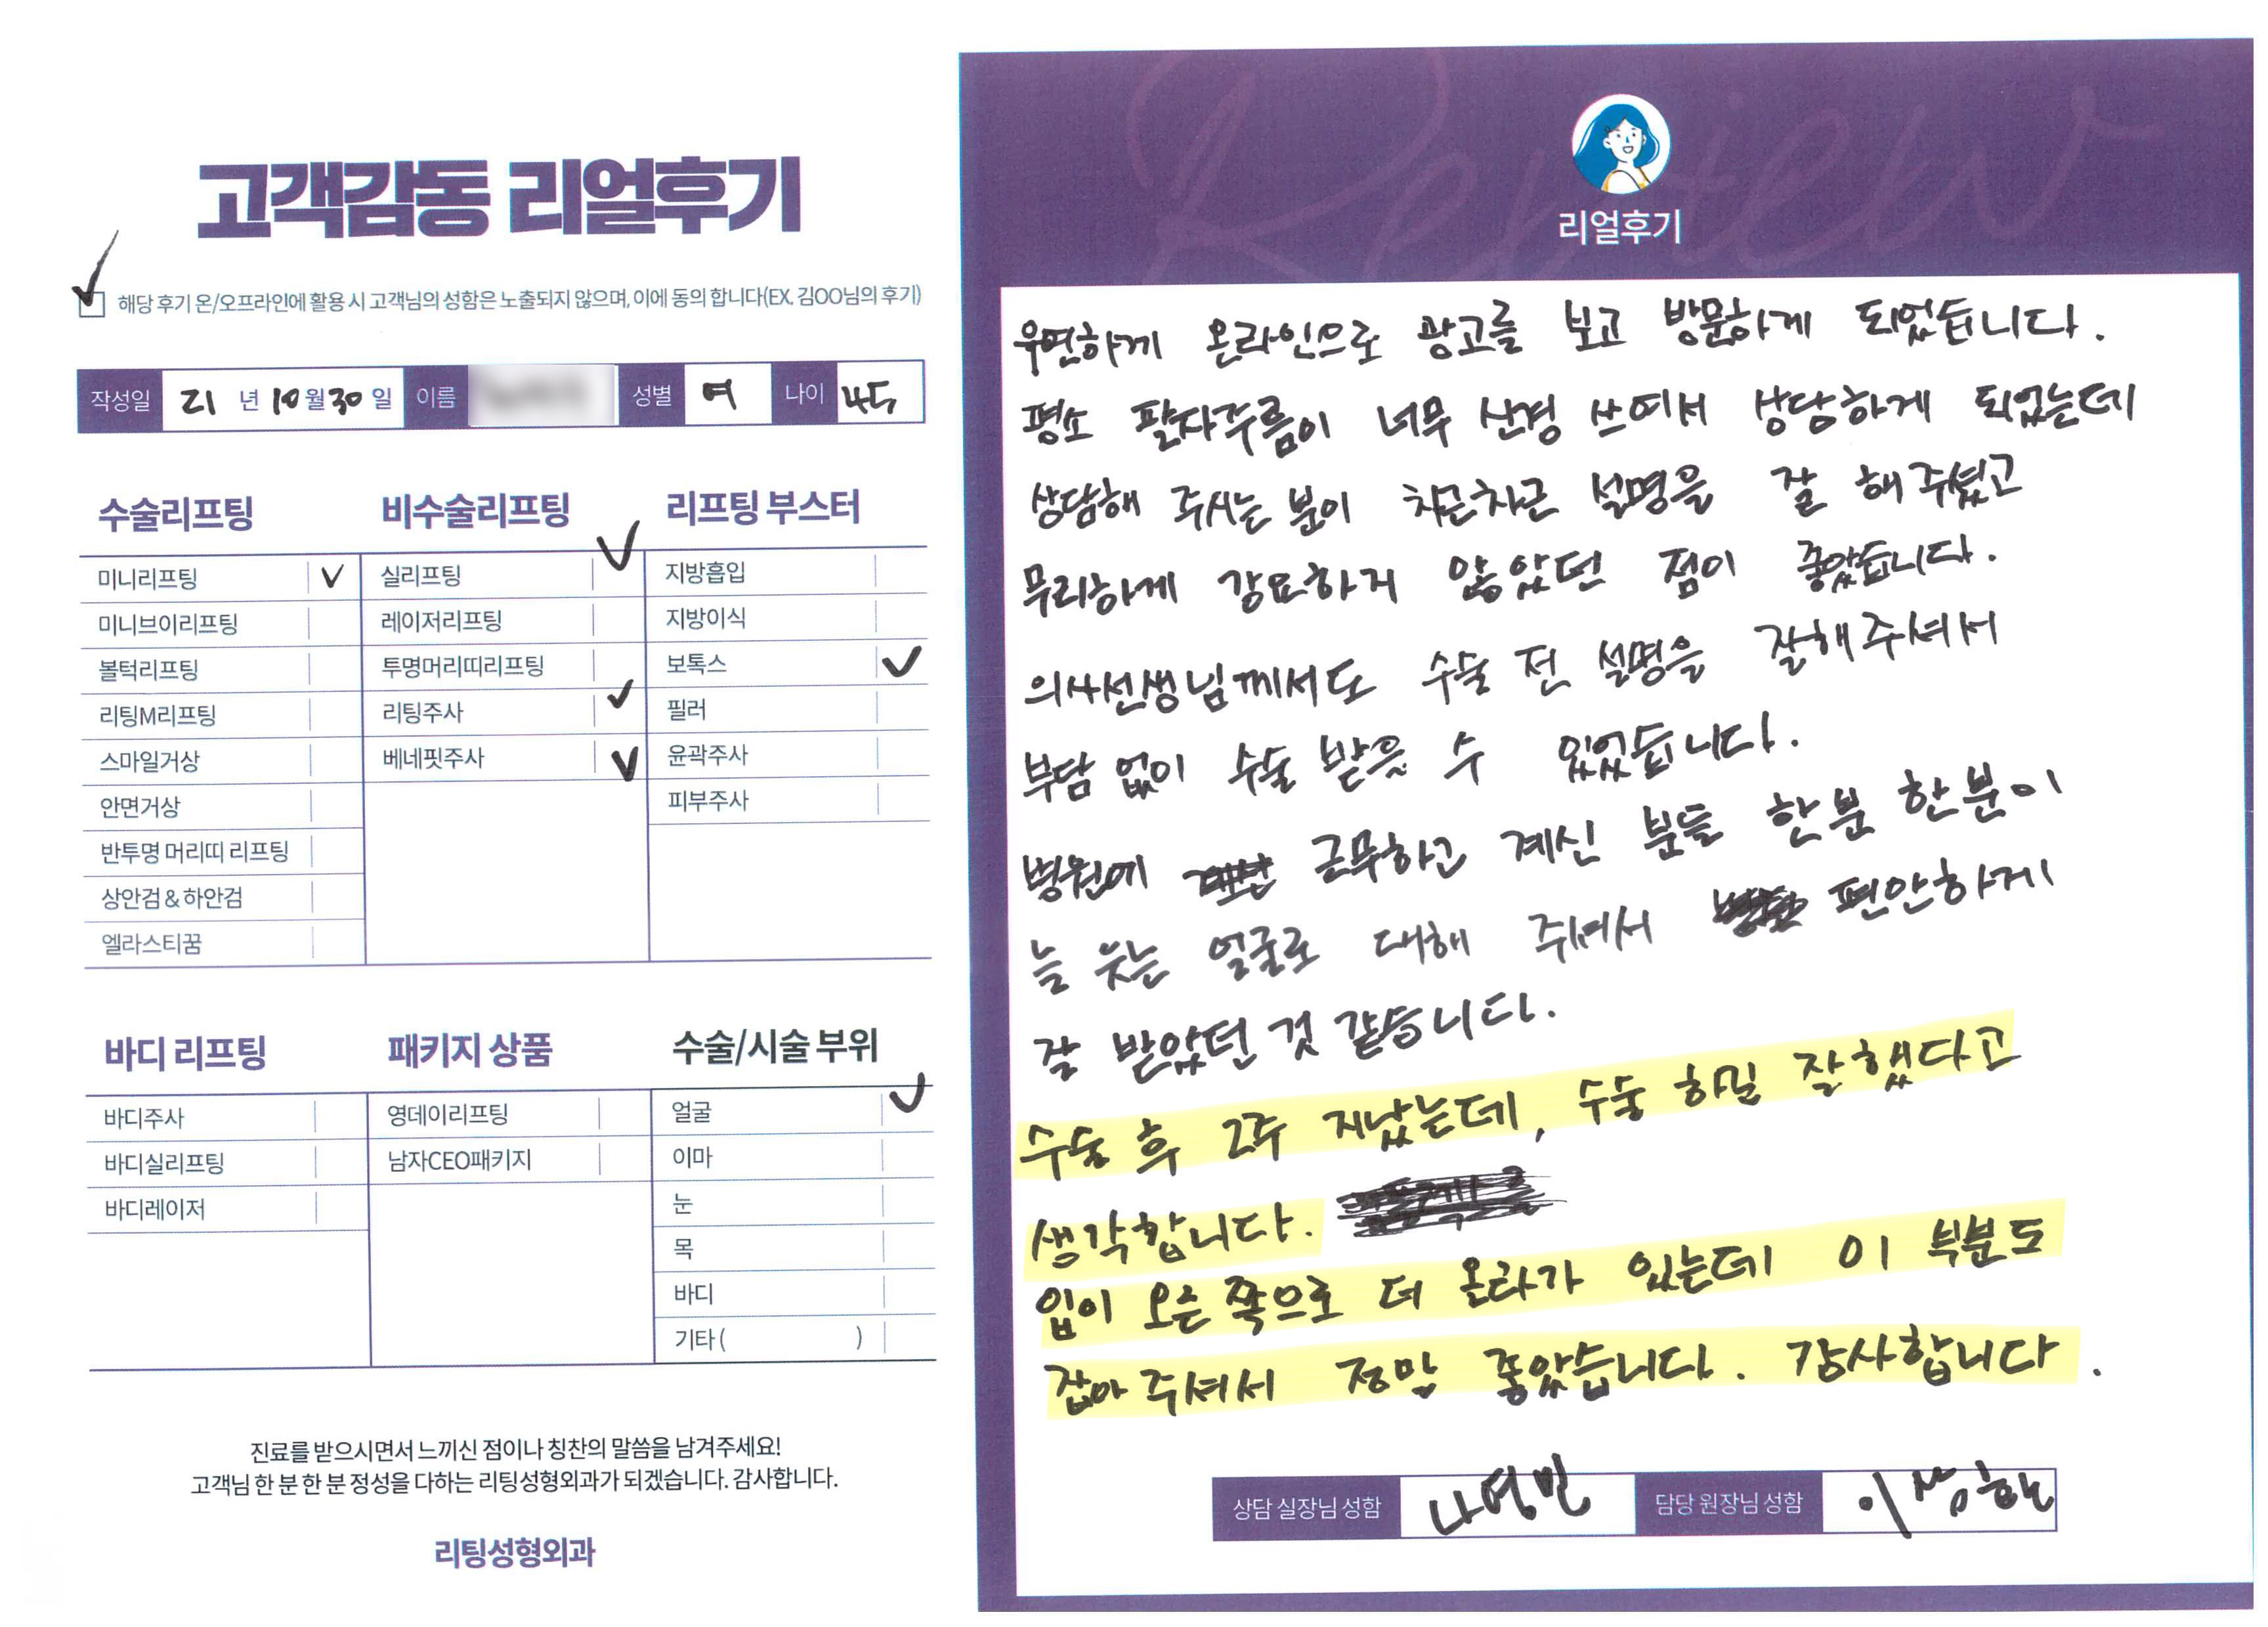 고객감동 리얼후기
해당 후기 온/오프라인에 활용 시 고객님의 성함은 노출되지 않으며, 이에 동의 합니다(EX. 김OO님의 후기)
작성일 21 년 10 월 30 일 이름 성별 여 나이 45
수술리프팅 비수술리프팅 리프팅 부스터
미니리프팅 실리프팅 지방흡입
미니브이리프팅 레이저리프팅 지방이식
볼턱리프팅 투명머리띠리프팅 보톡스
리팅M리프팅 리팅주사 필러
스마일거상 베네핏주사 윤곽주사
안면거상 피부주사
반투명 머리띠 리프팅
상안검 & 하안검
엘라스티꿈
바디 리프팅 패키지 상품 수술/시술 부위
바디주사 영데이리프팅 얼굴
바디실리프팅 남자CEO패키지 이마
바디레이저 눈
목
바디
기타 ( )
진료를 받으시면서 느끼신 점이나 칭찬의 말씀을 남겨주세요!
고객님 한 분 한 분 정성을 다하는 리팅성형외과가 되겠습니다. 감사합니다.
리팅성형외과
Review
리얼후기
우연하게 온라인으로 광고를 보고 방문하게 되었습니다.
평소 팔자주름이 너무 신경 쓰여서 상담하게 되었는데
상담해 주시는 분이 차근차근 설명을 잘 해주셨고
무리하게 강요하지 않았던 점이 좋았습니다.
의사선생님께서도 수술 전 설명을 잘해주셔서
부담 없이 수술 받을 수 있었습니다.
병원에 근무하고 계신 분들 한분 한분이
늘 웃는 얼굴로 대해 주셔서 편안하게
잘 받았던 것 같습니다.
수술 후 2주 지났는데, 수술 하길 잘했다고
생각합니다.
입이 오른쪽으로 더 올라가 있는데 이 부분도
잡아 주셔서 정말 좋았습니다. 감사합니다.
상담 실장님 성함 나영민 담당 원장님 성함 이상한